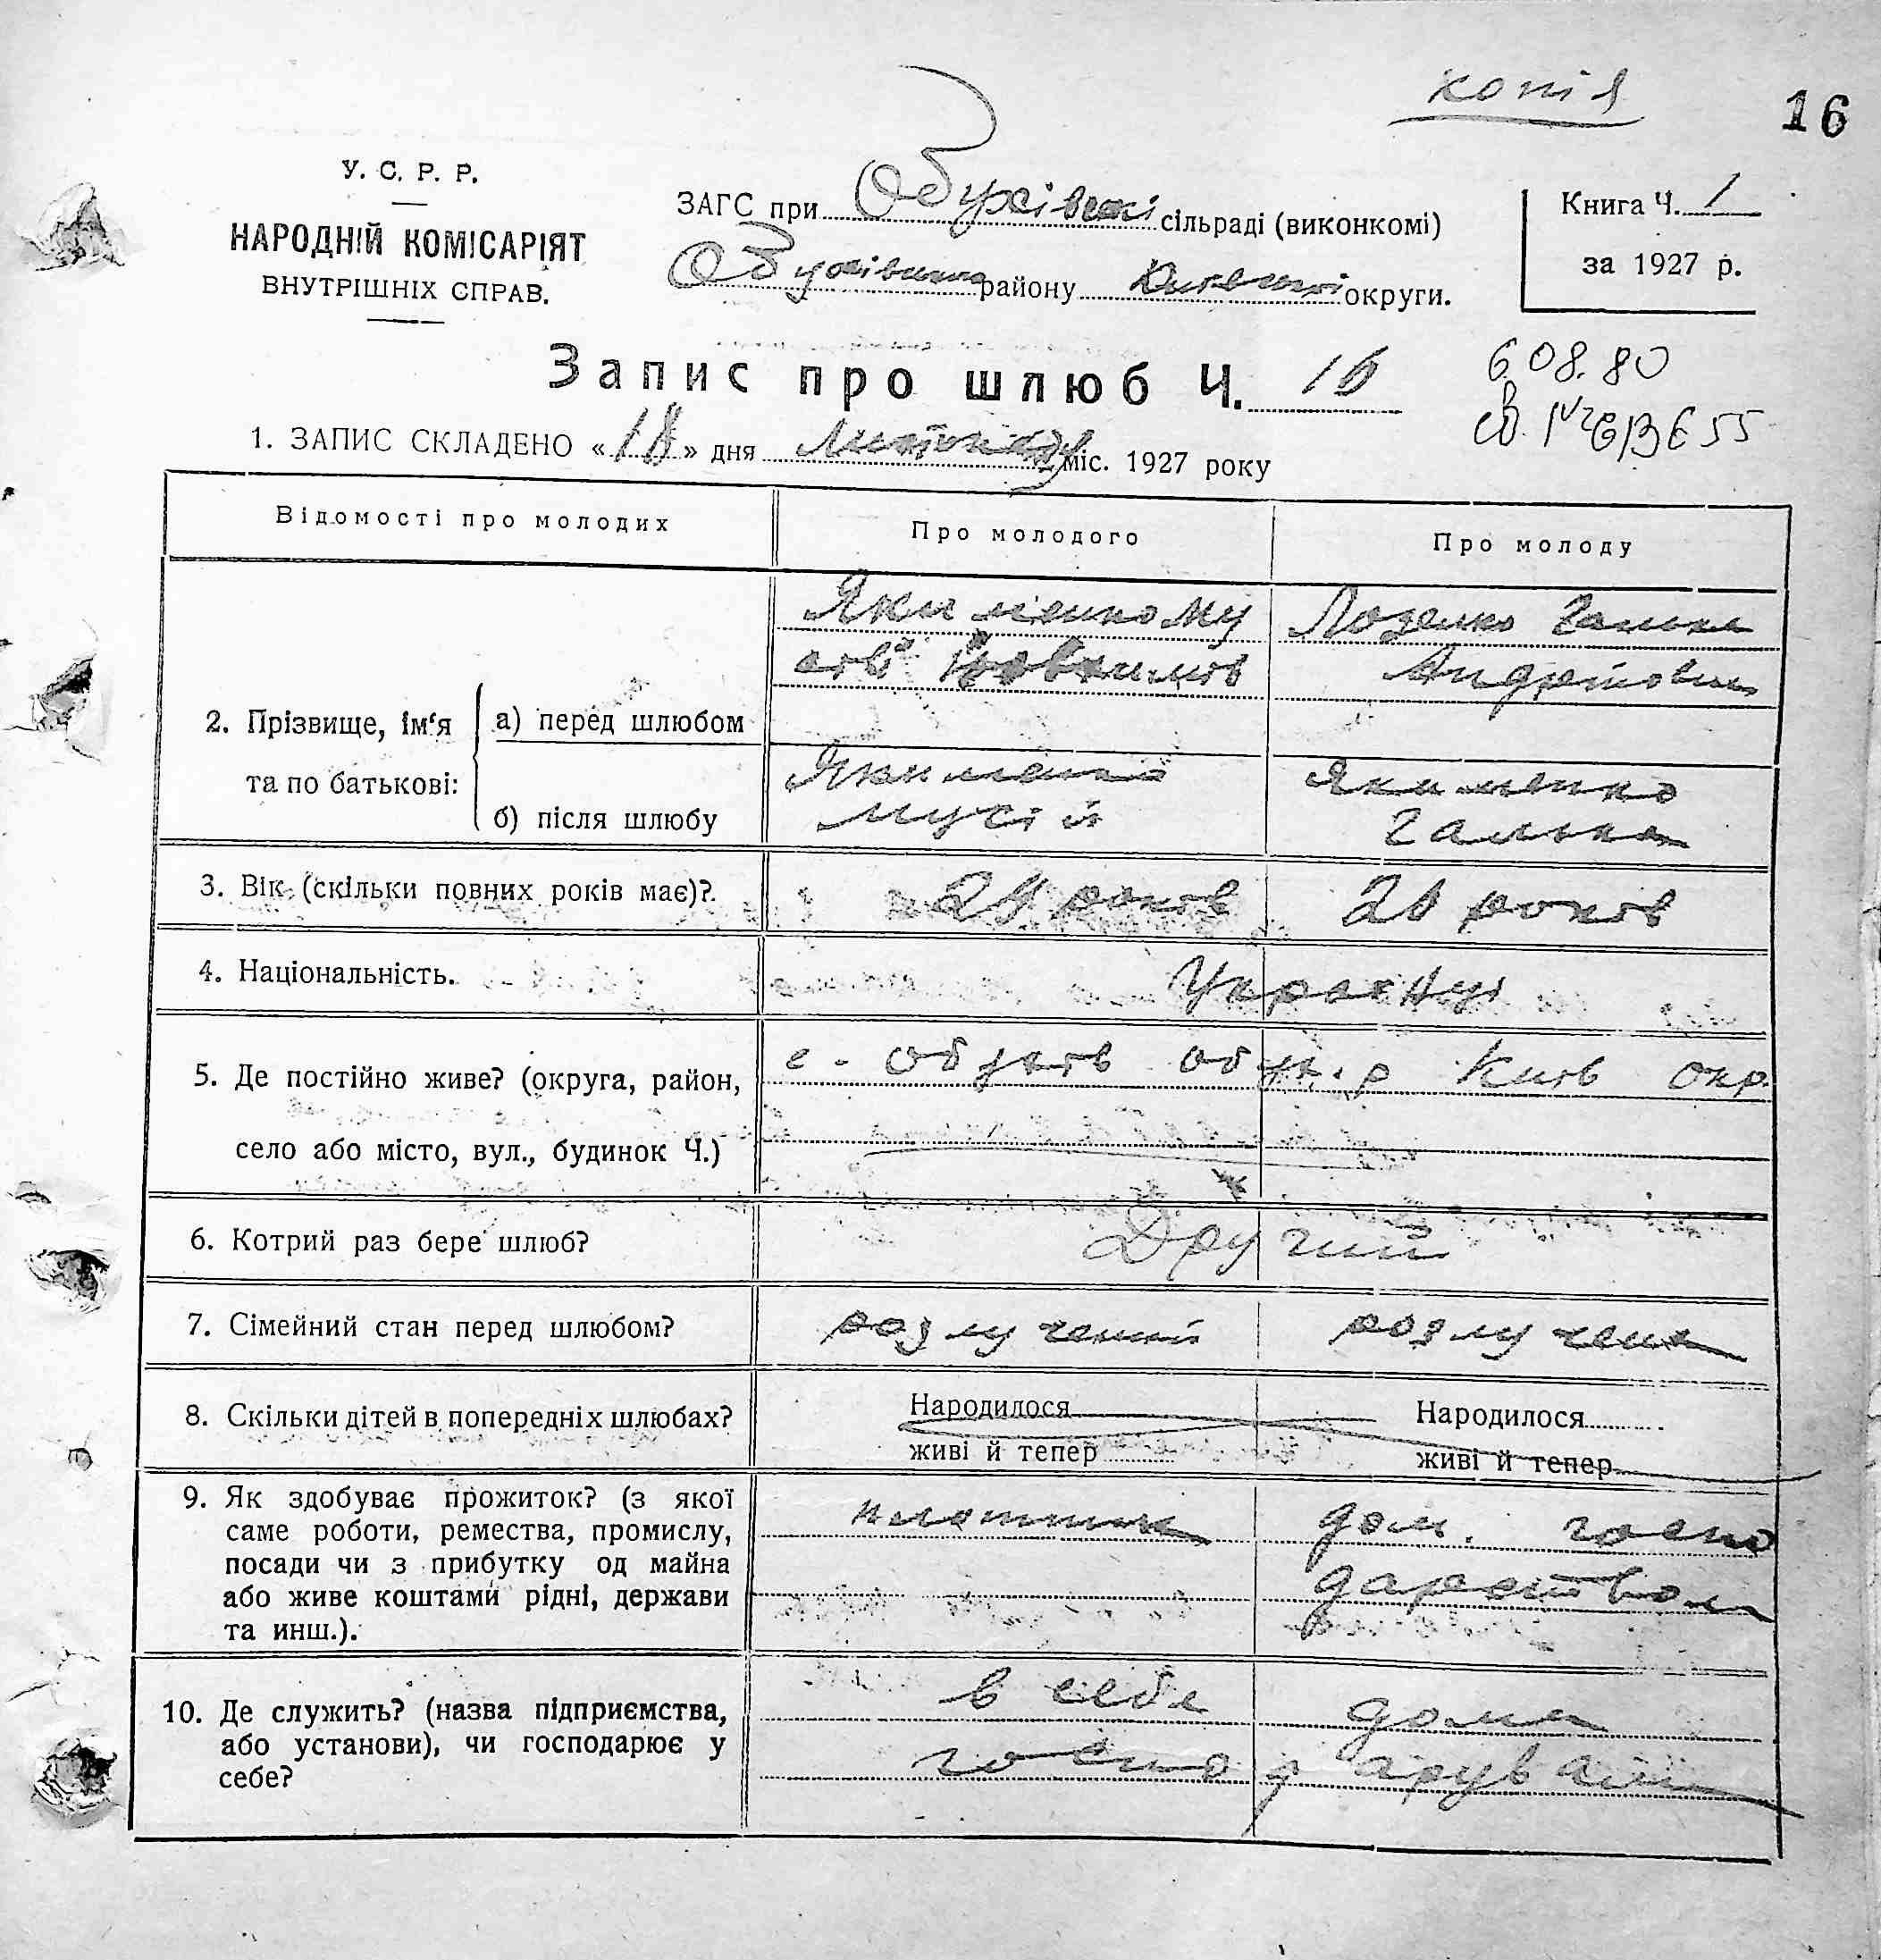 копія
16
У. С. Р. Р.
НАРОДНІЙ КОМІСАРІЯТ
ВНУТРІШНІХ СПРАВ.
ЗАГС при Обухівській сільраді (виконкомі)
Обухівського району Київської округи.
Книга Ч. 1
за 1927 р.
Запис про шлюб Ч. 16
6.08.80
св. ІV
1. ЗАПИС СКЛАДЕНО «18» дня Листопаду міс. 1927 року
Відомості про молодих
Про молодого
Про молоду
2. Прізвище, ім‘я та по батькові:
а) перед шлюбом
Якименко Му
Галька
Андріївна
б) після шлюбу
Якименко
Мусій
Якименко
Галька
3. Вік (скільки повних років має)?
років
років
4. Національність.
Українці
5. Де постійно живе? (округа, район,
село або місто, вул., будинок Ч.)
с. Обухів Обух. р Київ окр.
6. Котрий раз бере шлюб?
Другий
7. Сімейний стан перед шлюбом?
розлучений
розлучена
8. Скільки дітей в попередніх шлюбах?
Народилося
живі й тепер
Народилося
живі й тепер
9. Як здобуває прожиток? (з якої
саме роботи, ремества, промислу,
посади чи з прибутку од майна
або живе коштами рідні, держави
та инш.).
плотник
дом. госпо
дарством
10. Де служить? (назва підприємства,
або установи), чи господарює у
себе?
в себе дома
господарував